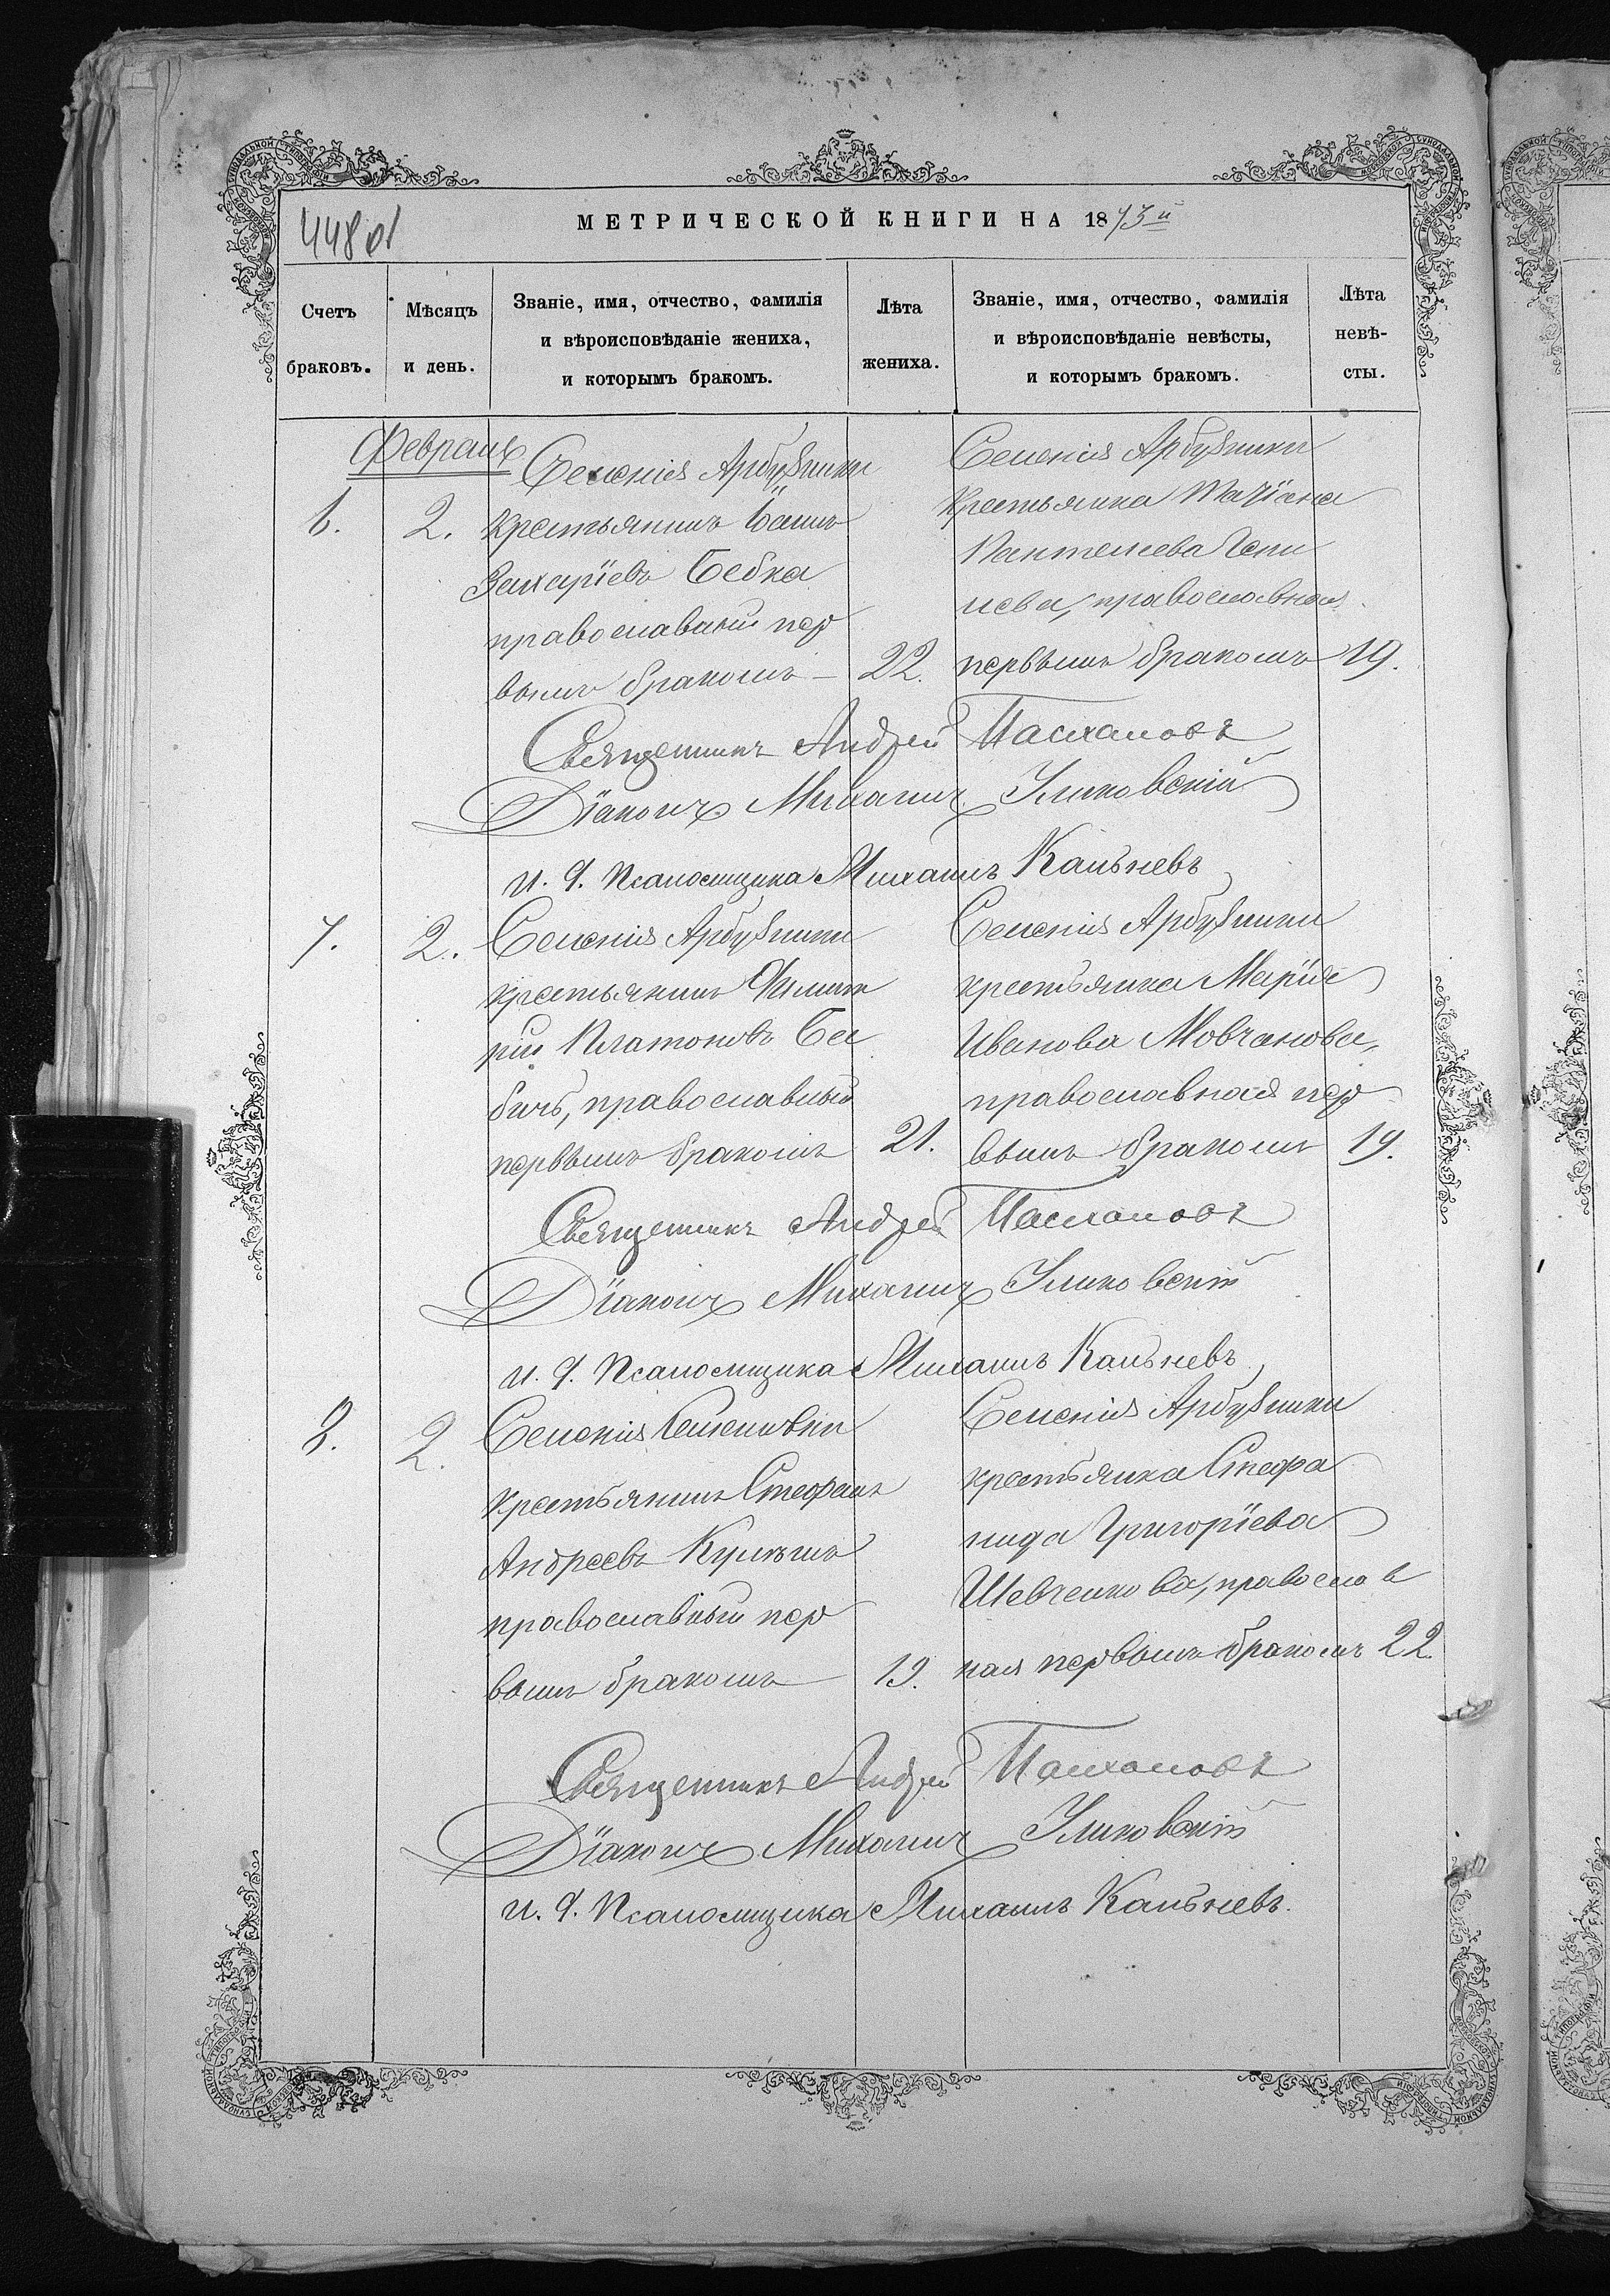 448 об
МЕТРИЧЕСКОЙ КНИГИ НА 1873й
Счетъ браковъ.
Мѣсяцъ и день.
Званіе, имя, отчество, фамилія
и вѣроисповѣданіе жениха,
и которымъ бракомъ.
Лѣта жениха.
Званіе, имя, отчество, фамилія
и вѣроисповѣданіе невѣсты,
и которымъ бракомъ.
Лѣта невѣ-
сты.
Февраль
6.
2.
Селенія Арбузинки
крестьянинъ Іоаннъ
Захаріевъ Бебка
православный пер
вымъ бракомъ
22.
Селенія Арбузинки
крестьянка Татіана
Пантелеева
православная
первымъ бракомъ
19.
Священникъ Андрей
Діаконъ Михаилъ
И. д. Псаломщика Михаилъ Кальневъ
7.
2.
Селенія Арбузинки
крестьянинъ Димит
рій Платоновъ Ба
бичъ, православный
первымъ бракомъ
21.
Селенія Арбузинки
крестьянка Марія
Иванова Мовчанова,
православная пер
вымъ бракомъ
19.
Священникъ Андрей
Діаконъ Михаилъ
И. д. Псаломщика Михаилъ Кальневъ
8.
2.
Селенія Семеновки
крестьянинъ Стефанъ
Андреевъ
православный пер
вымъ бракомъ
19.
Селенія Арбузинки
крестьянка Стефа
нида Григоріева
Шевченкова, православ
ная первымъ бракомъ
22.
Священникъ Андрей
Діаконъ Михаилъ
И. д. Псаломщика Михаилъ Кальневъ.